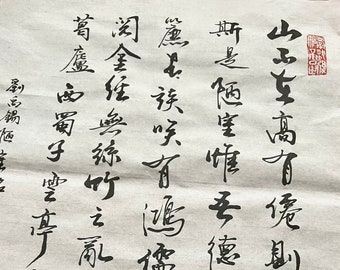 山不在高有僊則
斯是陋室惟吾德
簾青談咲有鴻儒
閱金經無絲竹之亂
葛廬西蜀子雲亭
劉禹錫陋室銘